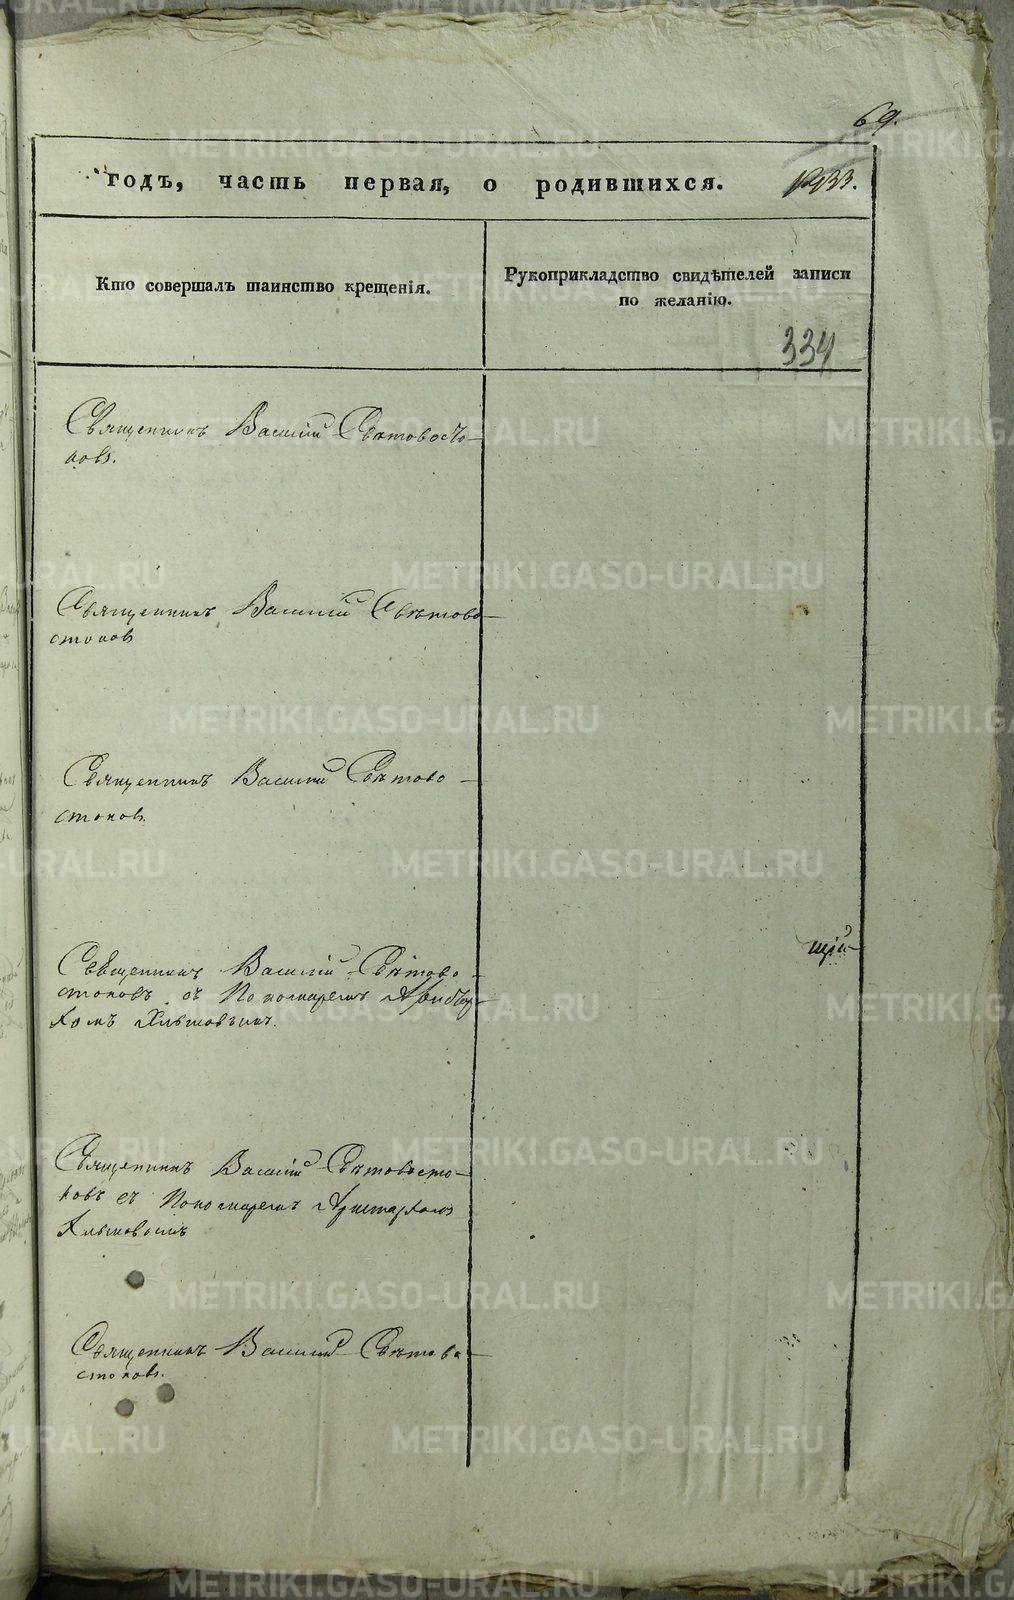 69.
годъ, часть первая, о родившихся.
Кто совершалъ таинство крещенія.
Рукоприкладство свидѣтелей записи
по желанію.
334
Священникъ Василій Свѣтовосто-
ковъ.
Священникъ Василій Свѣтово-
стоковъ
Священникъ Василій Свѣтово-
стоковъ.
Священникъ Василій Свѣтово-
стоковъ съ Пономаремъ
щій
Священникъ Василій Свѣтовосто-
ковъ съ Пономаремъ Аристархомъ
Священникъ Василій Свѣтово-
стоковъ.
METRIKI.GASO-URAL.RU